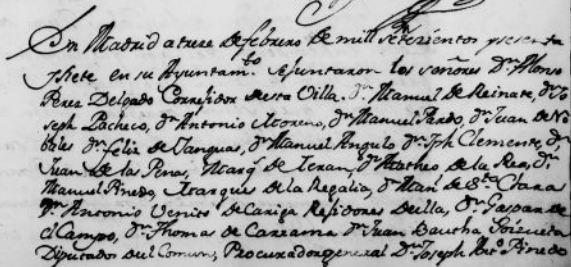 En Madrid a trece de febrero de mill setezientos y sesenta
y siete en su Ayuntam.to se juntaron los señores Dn. Alonso
Perez Delgado Corregidor de esta Villa. dn. Manuel de Reinate, dn. Jo
seph Pacheco, dn. Antonio Moreno, dn. Manuel Pardo, dn. Juan de No
bales dn. Felix de Yanguas, dn. Manuel Angulo dn. Jph Clemente, dn.
Juan de la Peña, Marqs. de Teran, dn. Matheo de la Rea, dn.
Manuel Pinedo, Marques de la Regalia, dn. Man.l de Sta. Clara
Dn. Antonio Venito de Cariga Regidores de ella, dn. Gaspar de
el Campo, dn. Thomas de Carranza dn. Juan Bautha
Diputados del Comun, Procurador general Dn. Joseph Anto. Pinedo